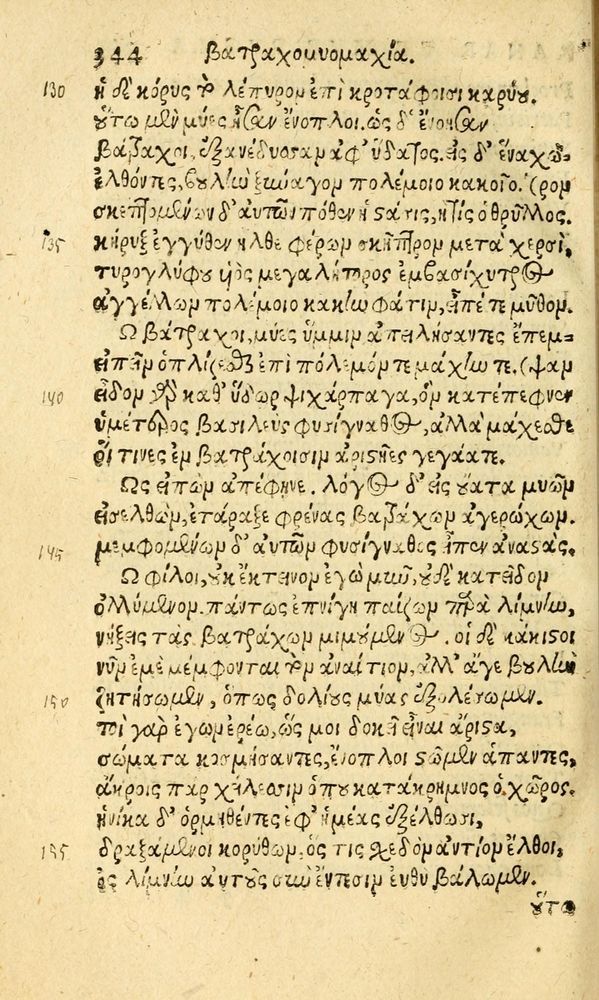 344 Βατραχομυομαχία.
130 ἡ δὲ κόρυς τὸ λέπυρομ ἐπὶ κροτάφοισι καρύου.
οὕτω μὲν μύες ἦσαν ἔνοπλοι. ὡς δ' ἐνόησαν
βάτραχοι, ἐξανέδυσαμ ἀφ' ὕδατος. εἰς δ' ἕνα χῶ-
ἐλθόντες, βουλὴν ξύναγομ πολέμοιο κακοῖο. (ρομ
σκεπτομένων δ' αὐτῶν πόθεν ἡ στάσις, ἢ τίς ὁ θρύλλος.
135 κήρυξ ἐγγύθεν ἦλθε φέρωμ σκῆπτρομ μετὰ χερσὶ,
τυρογλύφου υἱὸς μεγαλήτορος ἐμβασίχυτρος
ἀγγέλλωμ πολέμοιο κακὴν φάτιμ, εἶπέ τε μῦθομ.
Ω βάτραχοι, μύες ὔμμιμ ἀπειλήσαντες ἔπεμ-
εἰπεῖμ ὁπλίζεσθαι ἐπὶ πόλεμόμ τε μάχην τε. (ψαμ
140 εἶδομ γὰρ καθ' ὕδωρ ψιχάρπαγα, ὃμ κατέπεφνεν
ὑμέτερος βασιλεὺς φυσίγναθος, ἀλλὰ μάχεσθε
οἵ τινες ἐμ βατράχοισιμ ἀριστῆες γεγάατε.
Ως εἰπὼμ ἀπέφηνε. λόγος δ' εἰς οὔατα μυῶμ
εἰσελθὼμ, ἐτάραξε φρένας βατράχωμ ἀγερώχωμ.
145 μεμφομένωμ δ' αὐτῶμ φυσίγναθος εἶπεν ἀναστάς.
Ω φίλοι, οὐκ ἔκτεινομ ἐγὼ μῦν, οὐδὲ κατεῖδομ
ὀλλύμενομ. πάντως ἐπνίγη παίζωμ παρὰ λίμνην,
νήξεις τὰς βατράχωμ μιμούμενος. οἱ δὲ κάκιστοι
νῦμ ἐμὲ μέμφονται τὸμ ἀναίτιομ, ἀλλ' ἄγε βουλὴν
150 ζητήσωμεν, ὅπως δολίους μύας ἐξολέσωμεν.
τοὶ γὰρ ἐγὼμ ἐρέω, ὥς μοι δοκεῖ εἶναι ἄριστα,
σώματα κοσμήσαντες, ἔνοπλοι στῶμεν ἅπαντες,
ἄκροις πὰρ χείλεσιμ ὅπου κατάκρημνος ὁ χῶρος.
ἡνίκα δ' ὁρμηθέντες ἐφ' ἡμέας ἐξέλθωσι,
155 δραξάμενοι κορύθωμ, ὅς τις σχεδὸμ ἀντίομ ἔλθοι,
ἐς λίμνην αὐτοὺς σὺν ἔντεσιμ εὐθὺ βάλωμεν.
οὕτω